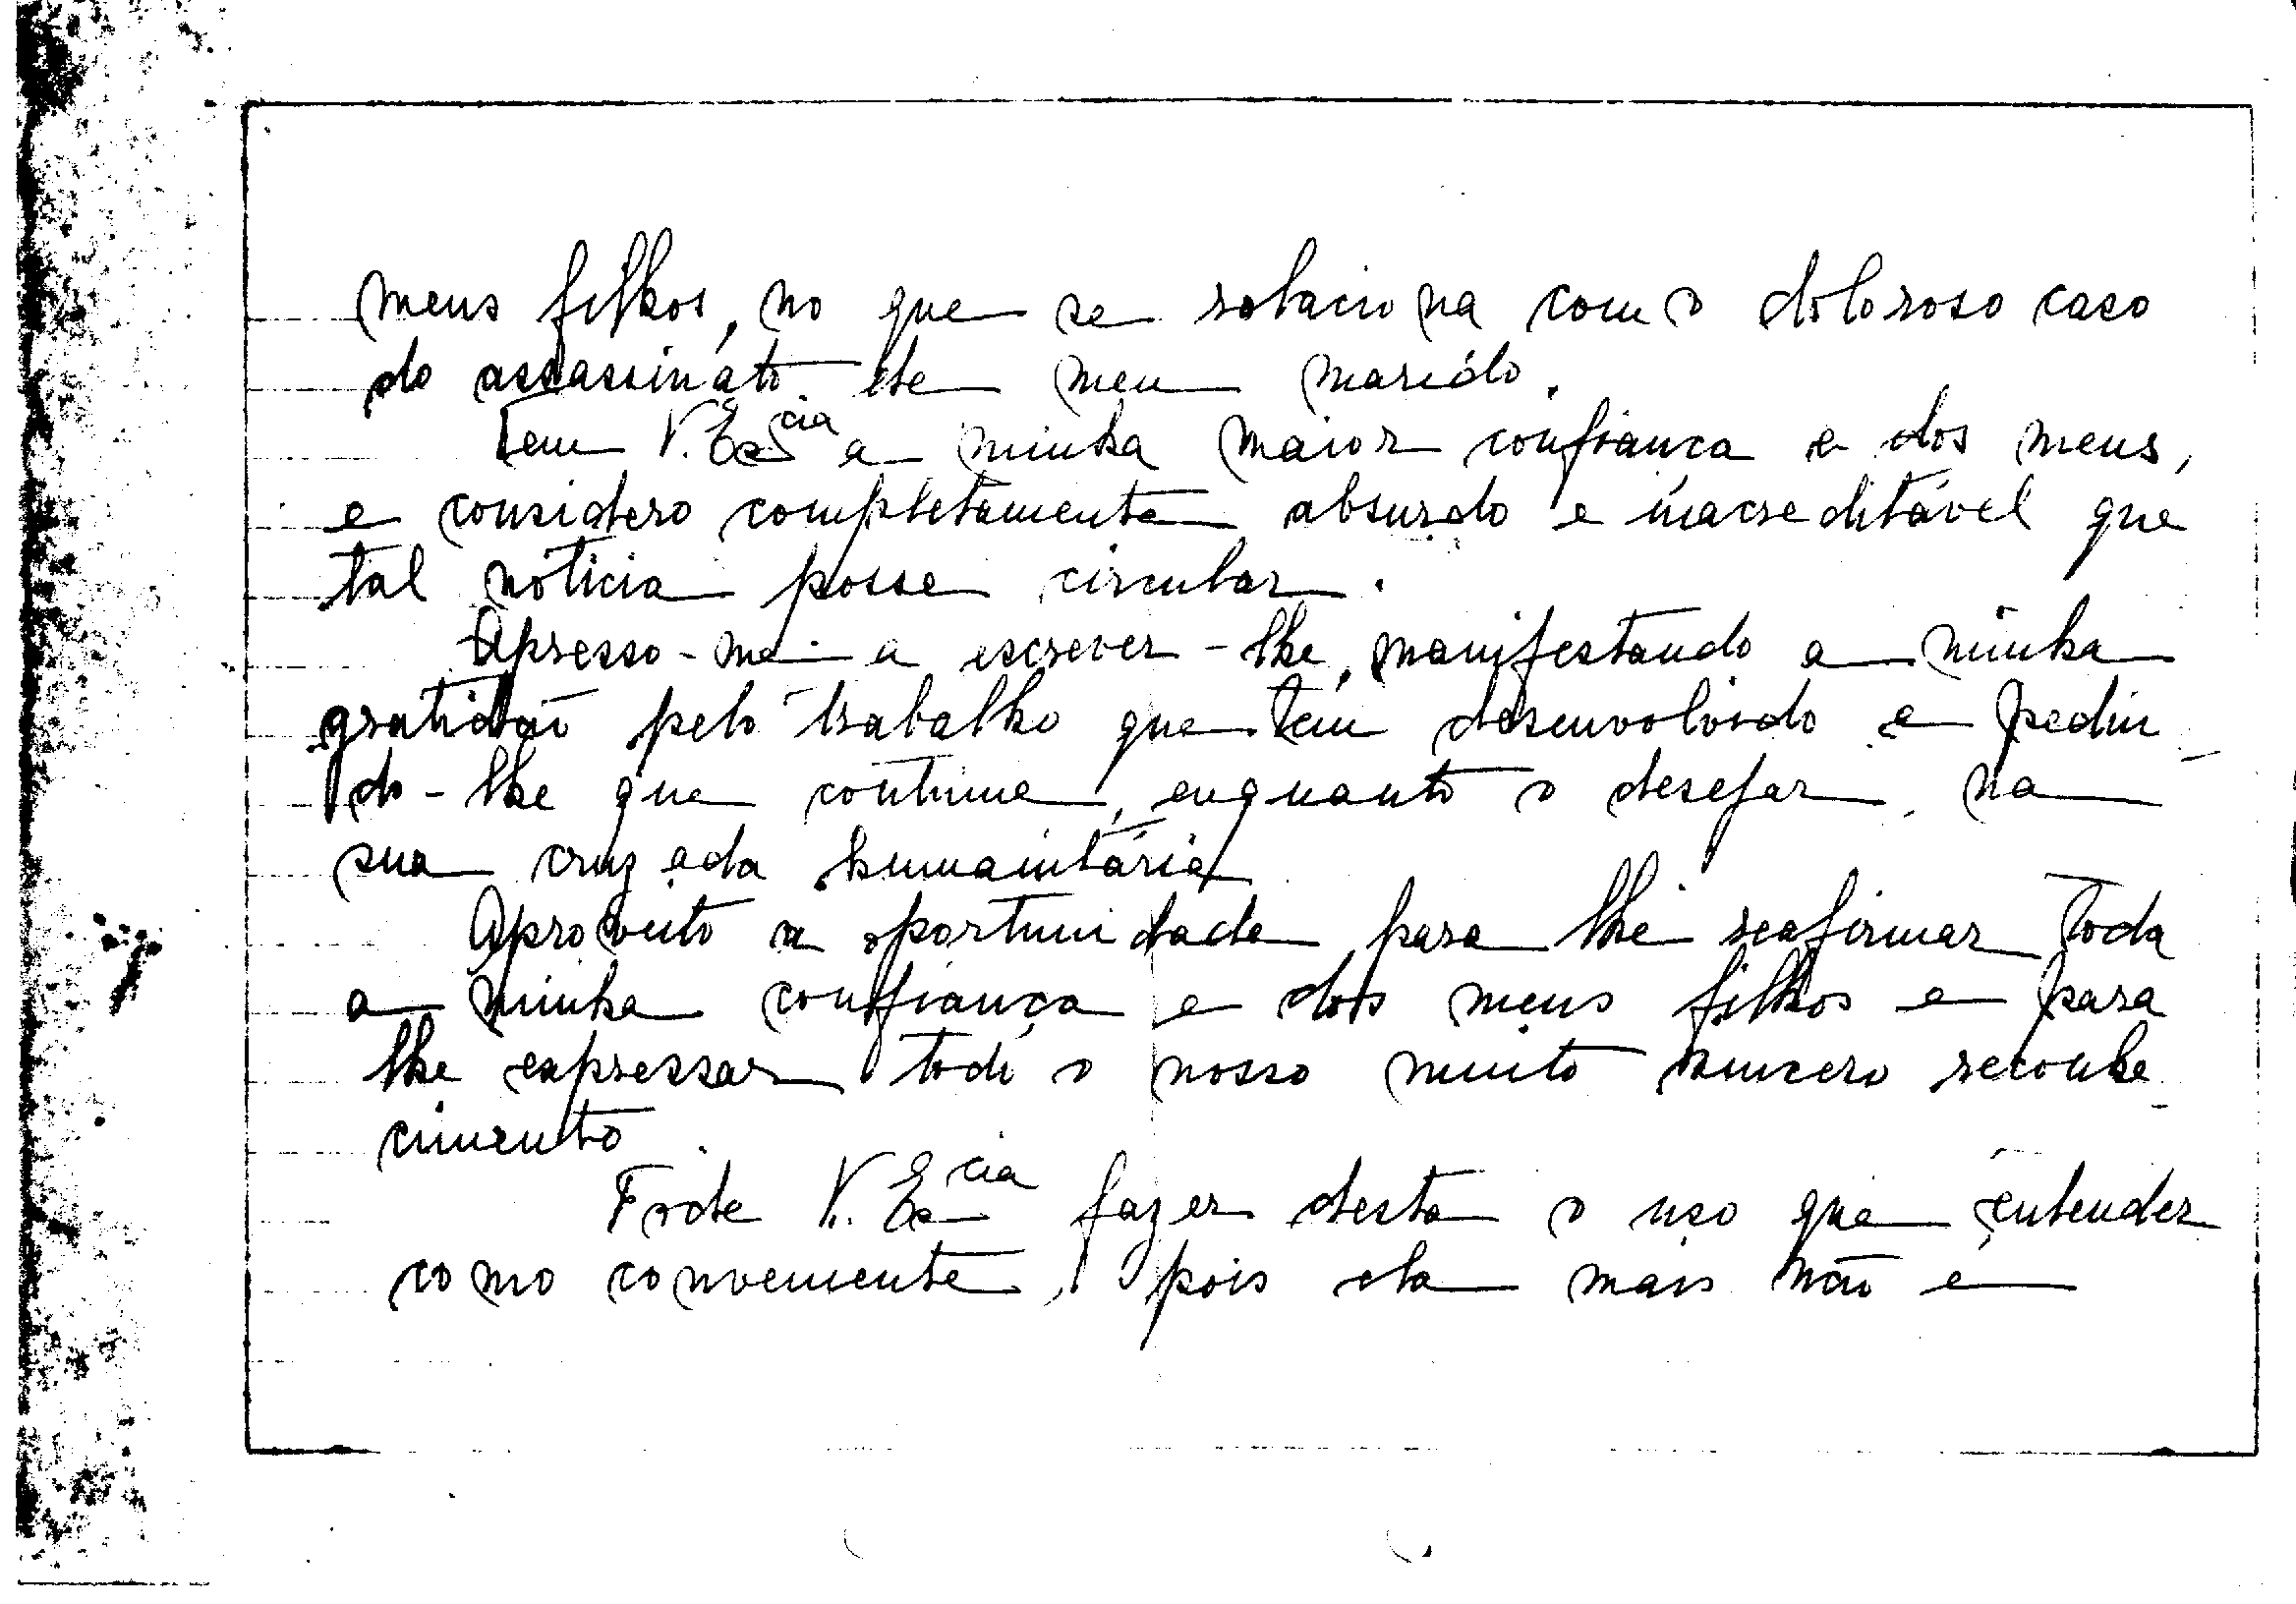 meus filhos, no que se relaciona com o doloroso caso
do assassinato de meu marido.
Tem V. Ex.cia a minha maior confiança e dos meus,
e considero completamente absurdo e inacreditável que
tal notícia posse circular.
Apresso-me a escrever-lhe, manifestando a minha
gratidão pelo trabalho que tem desenvolvido e pedin-
do-lhe que continue, enquanto o desejar, na
sua cruzada humanitária
Aproveito a oportunidade para lhe reafirmar toda
a minha confiança e dos meus filhos e para
lhe expressar todo o nosso muito sincero reconhe-
cimento.
Pode V. Ex.cia fazer desta o uso que entender
como conveniente, pois ela mais não é